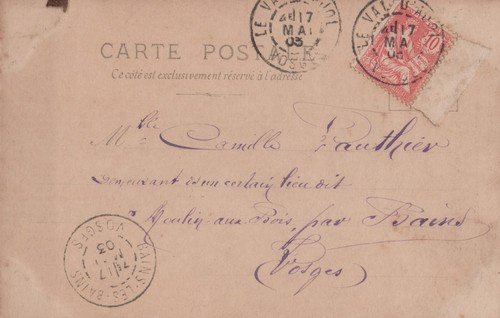 LE VAL-D'AJOL
17
MAI
03
VOSGES
LE VAL-D'AJOL
17
MAI
03
10
CARTE POSTALE
Ce côté est exclusivement réservé à l'adresse
Mlle Camille Gauthier
demeurant en un certain lieu dit
Moulin-aux-Bois, par Bains
Vosges
BAINS-LES-BAINS
17
03
VOSGES